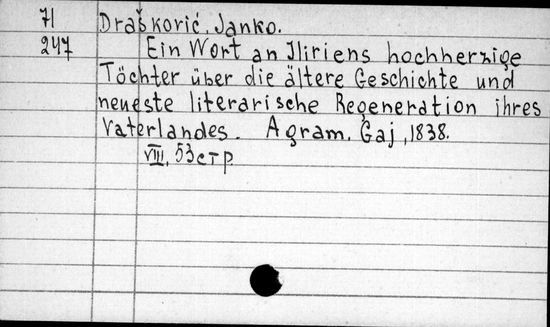 71 Drašković, Janko.
247 Ein Wort an Iliriens hochherzige
Töchter über die ältere Geschichte und
neueste literarische Regeneration ihres
Vaterlandes. Agram, Gaj, 1838.
VIII, 53 стр